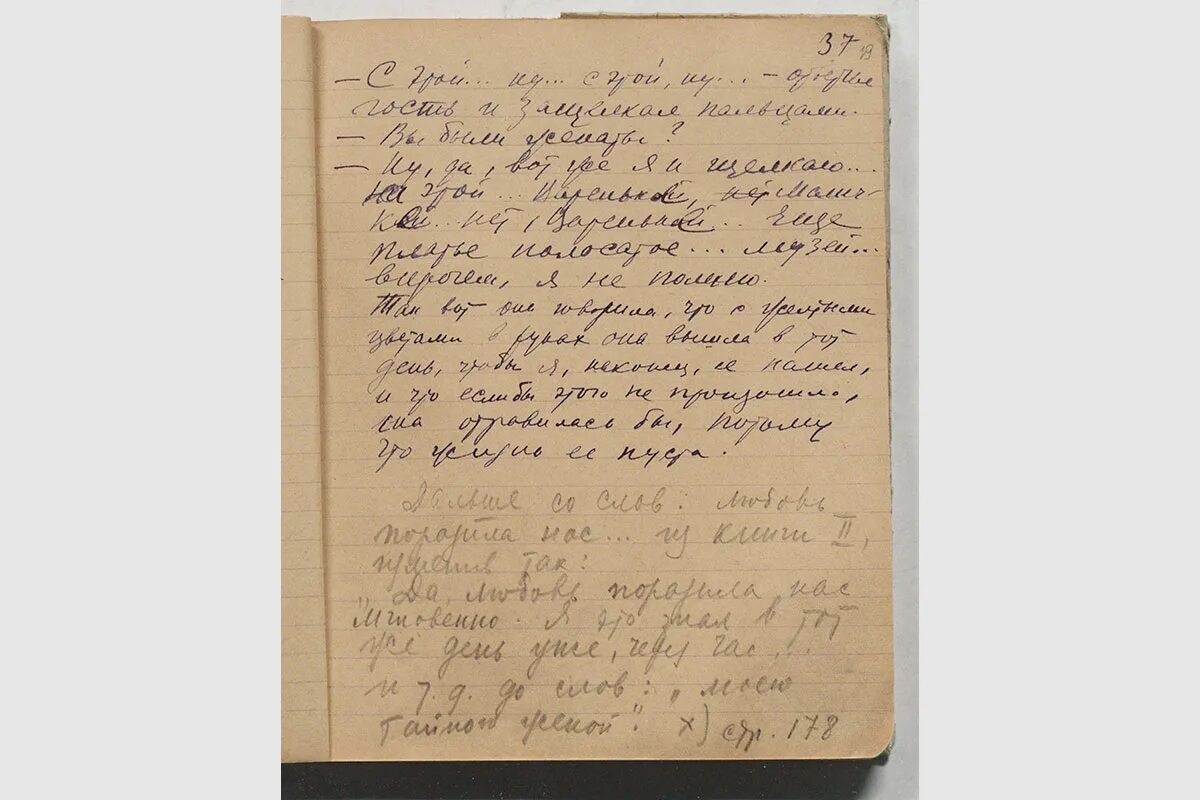 37
— С этой... ну... с этой, ну... — ответил
гость и защелкал пальцами.
— Вы были женаты?
— Ну, да, вот же я и щелкаю...
На этой... Вареньке, нет Манич-
ке... нет, Вареньке... Еще
платье полосатое... музей...
впрочем, я не помню.
Так вот она говорила, что с желтыми
цветами в руках она вышла в тот
день, чтобы я, наконец, ее нашел,
и что если бы этого не произошло,
она отравилась бы, потому
что жизнь ее пуста.
Дальше со слов: любовь
поразила нас... из книги II,
так:
„Да, любовь поразила нас
мгновенно. Я это знал в тот
же день уже, через час...
и т. д. до слов: „моею
тайною женой". х) стр. 178